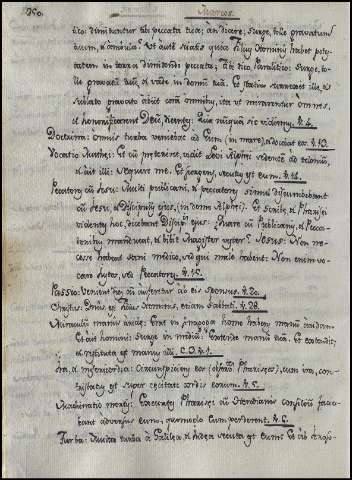 Marcus.
dico: dimittuntur tibi peccata tua; an dicere: Surge, tolle gravatum
tuum, et ambula? Ut autem sciatis quia Filius hominis habet potes
tatem in terra dimittendi peccata; Tibi dico: Surge, tol-
le tuum, et vade in domum tuam. Et statim surrexit ille, et
sublato grabato abiit coram omnibus, ita ut mirarentur omnes,
et honorificarent Deum, dicentes: Quia nunquam sic vidimus.
Doctrina: omnis turba veniebat ad Eum (in mare) et docebat eos. v. 13.
Vocatio Matthaei: Et cum præteriret, vidit Levi Alphæi sedentem ad telonium,
et ait illi: Sequere me. Et surgens, secutus est eum. v. 14.
Peccatorum cum Jesu: Multi publicani, et peccatores simul discumbebant
cum Jesu, et Discipulis ejus, (in domo Alphæi). Et Scribæ, et Pharisæi
videntes hoc, dicebant Discipulis ejus: Quare cum Publicanis, et Pecca-
toribus manducat, et bibit Magister vester? Jesus: Non ne-
cesse habent sani medico, sed qui male habent: Non enim vo-
care Justos, sed Peccatores. v. 15.
Passio: Venient dies cum auferetur ab eis sponsus. v. 20.
Christus: Dominus est Filius hominis, etiam Sabbati. v. 28.
Miraculum manus aridæ: Erat in synagoga homo habens manum aridam.
Et ait homini: Surge in medium: Extende manum tuam. Et extendit,
et restituta est manus illi. C. 3. v. 1.
Ira, et misericordia: Circumspiciens eos Pharisæos, cum ira, con-
tristatus est super cæcitate cordis eorum. v. 5.
Machinatio mortis: Exeuntes Pharisæi cum Herodianis consilium facie-
bant adversus eum, quomodo Eum perderent. v. 6.
Turba: Multa turba a Galilæa et Judæa secuta est eum: Et ab